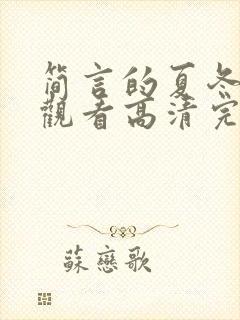 简言的夏冬
觀看高清完
蘇戀歌